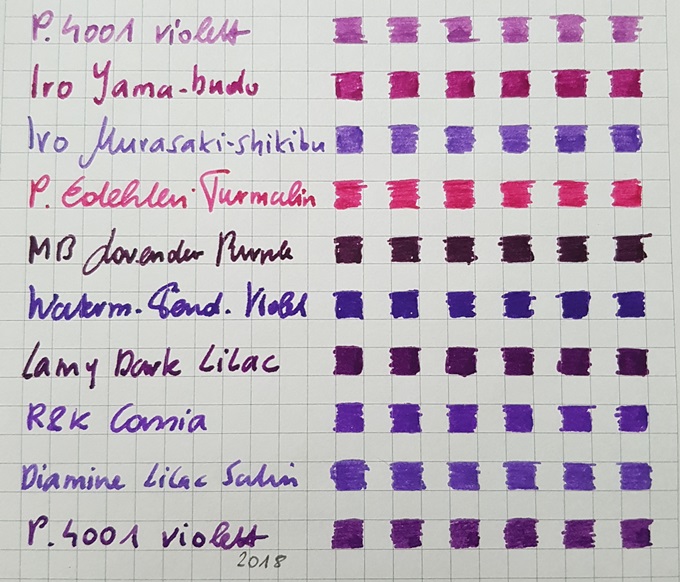 P. 4001 violett
Iro Yama-budo
Iro Murasaki-shikibu
P. Edehlen Turmalin
MB Lavender Purple
Waterm. Tend. Violet
Lamy Dark Lilac
R&K Cassia
Diamine Lilac Satin
P. 4001 violett
2018